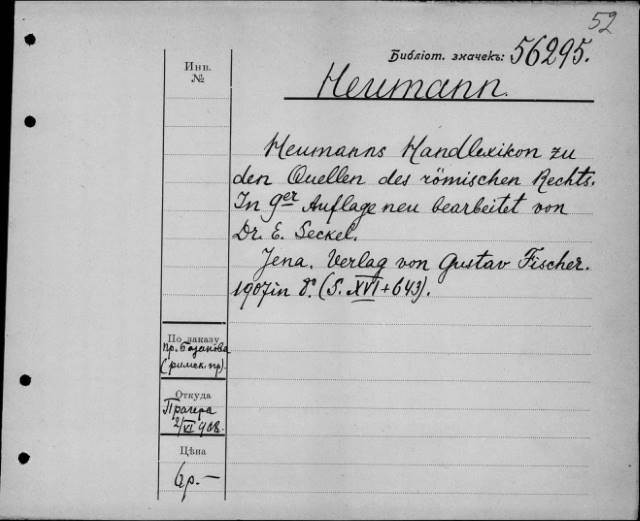 52
Библіот. значекъ: 56295.
Инв.
№
Heumann.
Heumanns Handlexikon zu
den Quellen des römischen Rechts.
In 9er Auflage neu bearbeitet von
Dr. E. Seckel.
Jena. Verlag von Gustav Fischer.
1907 in 8. (S. XVI+643).
По заказу
пр. Базанова
(римск. пр).
Откуда
Прагера
2/VI 908.
Цѣна
р. —